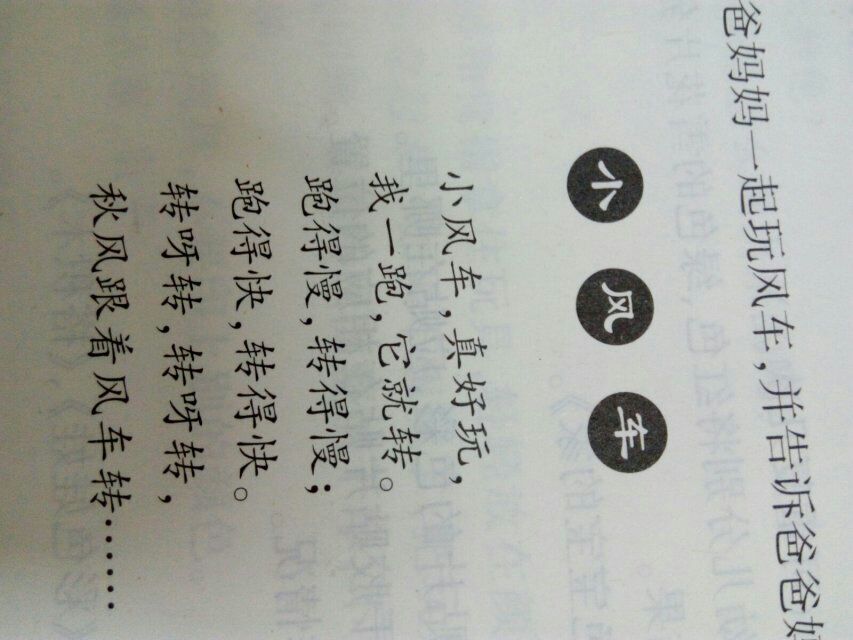 爸妈妈一起玩风车,并告诉爸爸
小风车
小风车,真好玩,
我一跑,它就转。
跑得慢,转得慢;
跑得快,转得快。
转呀转,转呀转,
秋风跟着风车转……